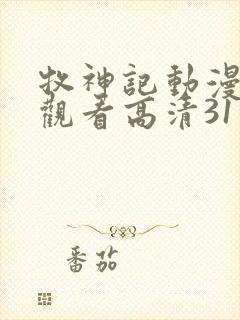 牧神記動漫
觀看高清31
番茄